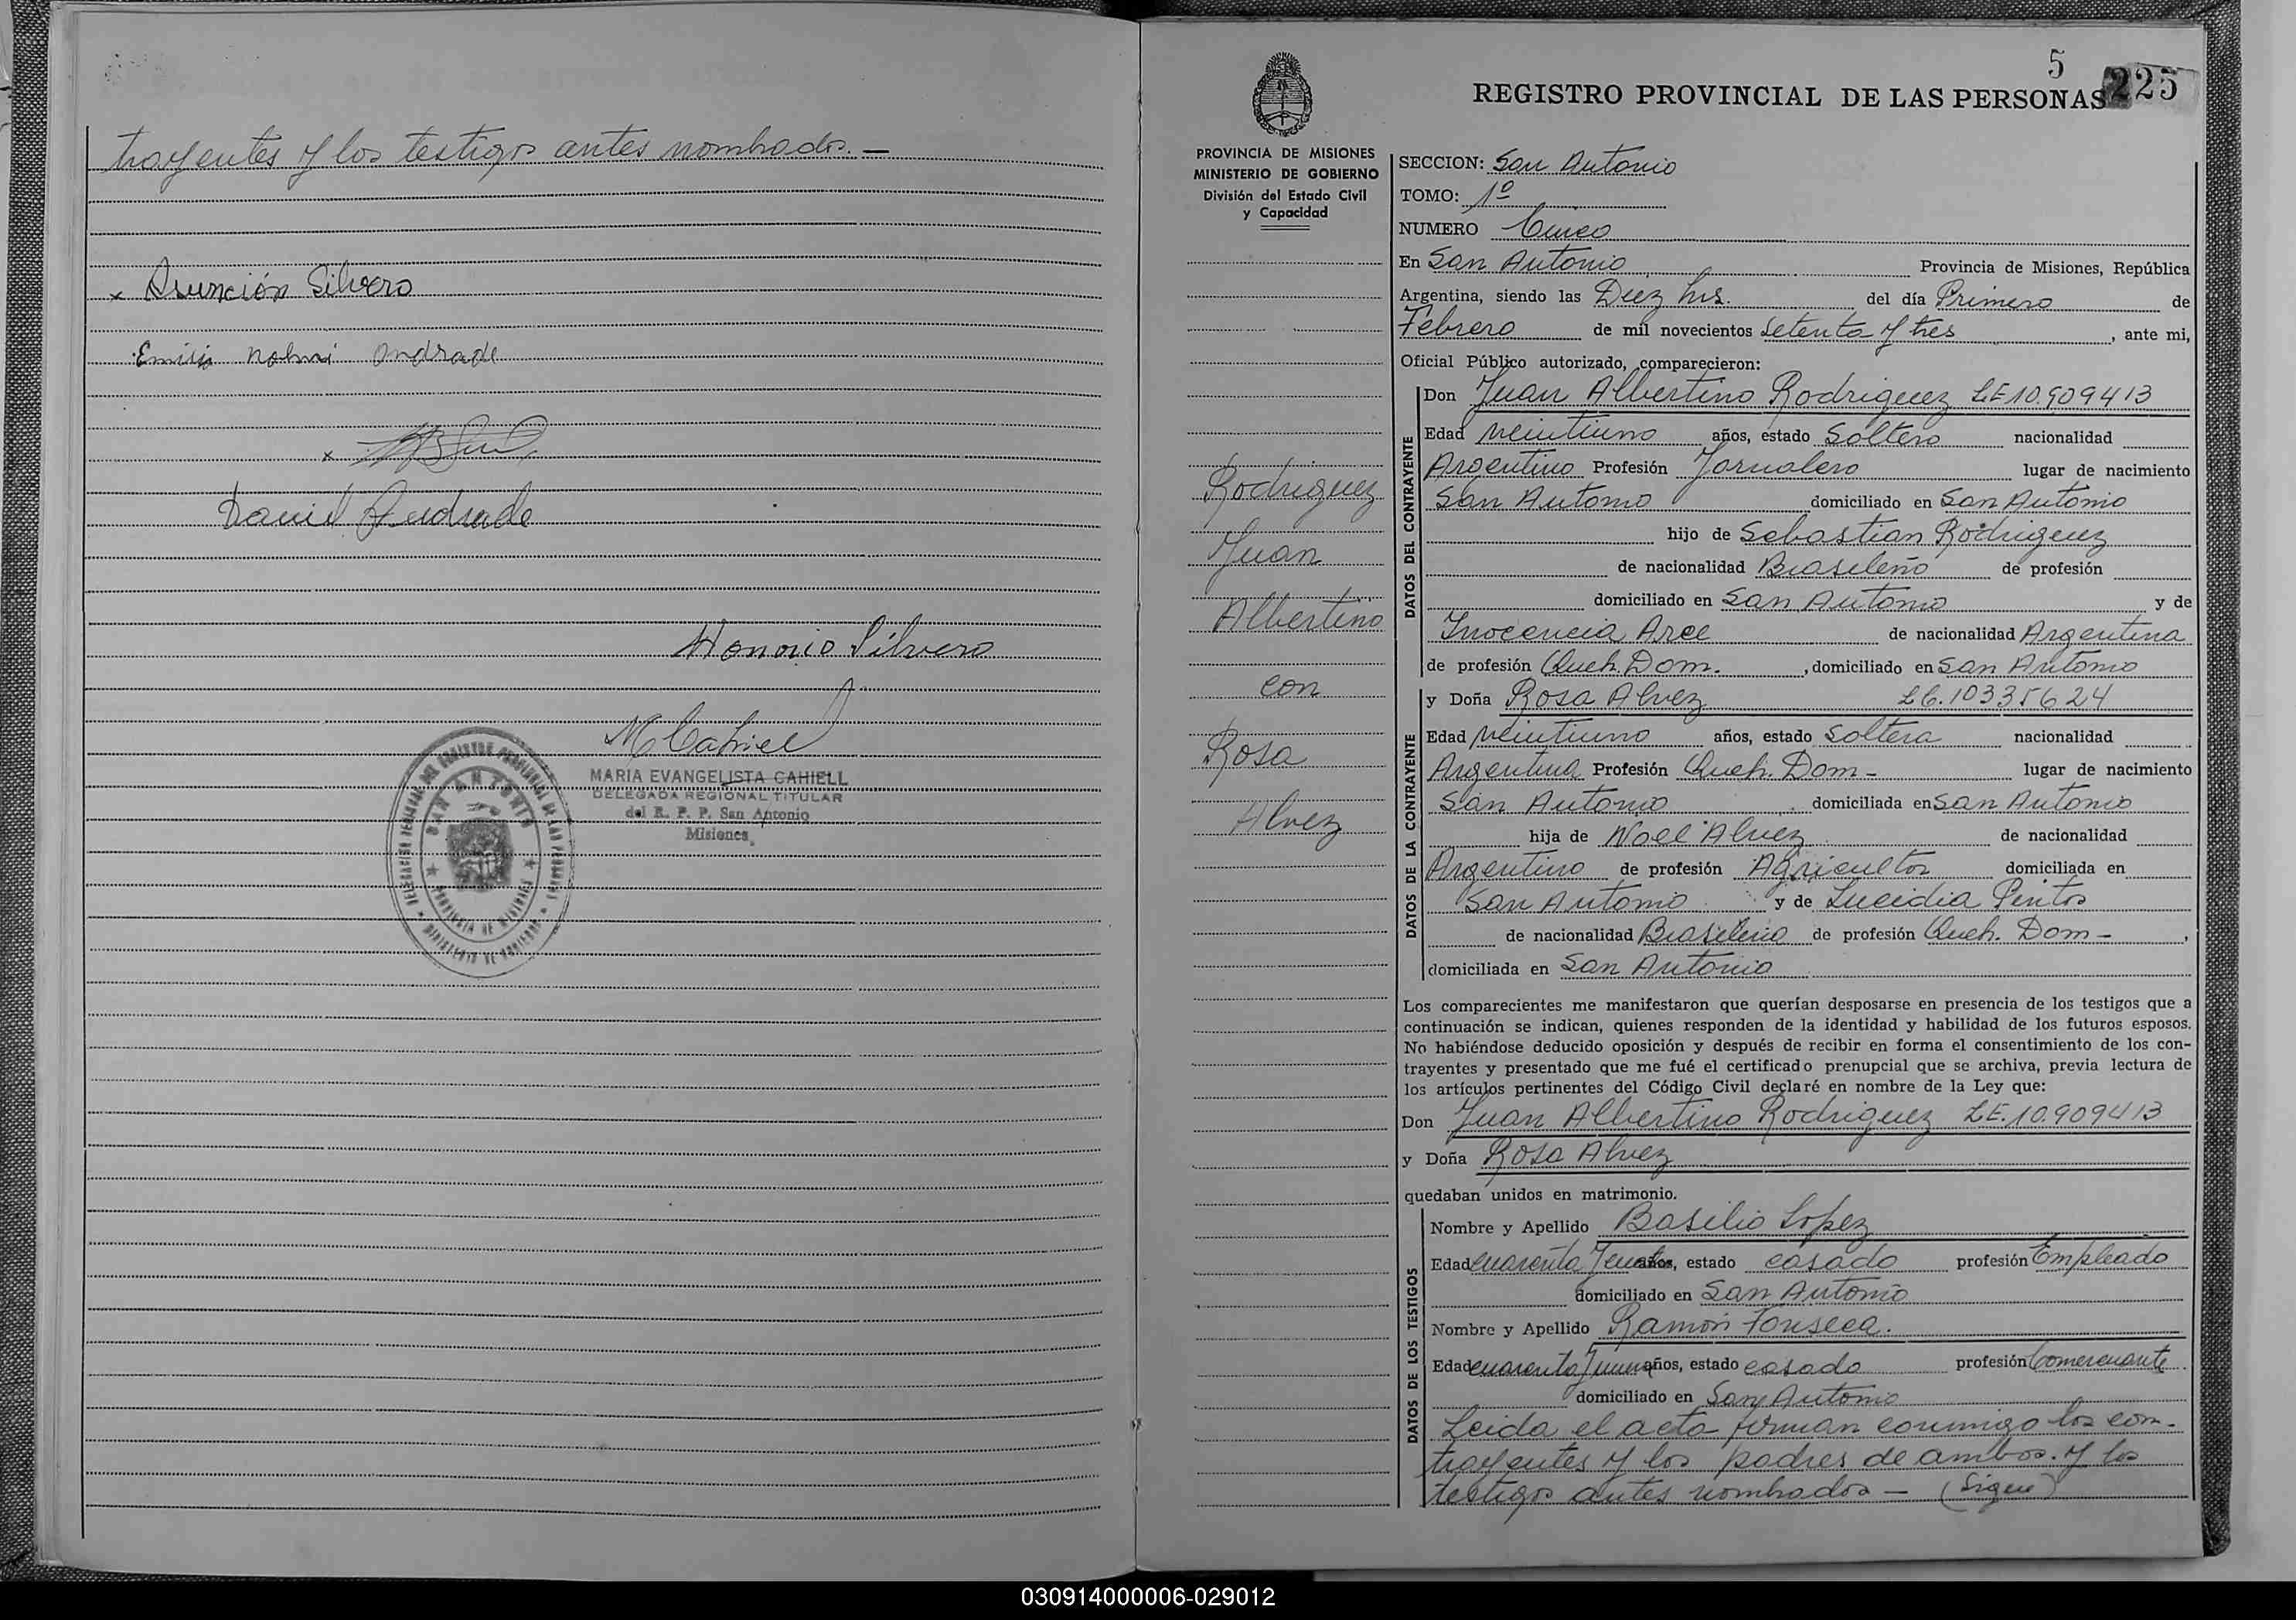 trayentes y los testigos antes nombrados. —
x Asunción Silvero
Emisi Nohmi Andrade
x
Daniel Andrade
Honorio Silvero
MCahiell
MARIA EVANGELISTA CAHIELL
DELEGADA REGIONAL TITULAR
del R. P. P. San Antonio
Misiones
SAN ANTONIO
PROVINCIA DE MISIONES
MINISTERIO DE GOBIERNO
5
225
REGISTRO PROVINCIAL DE LAS PERSONAS
PROVINCIA DE MISIONES
MINISTERIO DE GOBIERNO
División del Estado Civil
y Capacidad
Rodriguez
Juan
Albertino
con
Rosa
Alvez
SECCION: San Antonio
TOMO: 1º
NUMERO Cinco
En San Antonio Provincia de Misiones, República
Argentina, siendo las Diez hrs. del día Primero de
Febrero de mil novecientos setenta y tres, ante mi,
Oficial Público autorizado, comparecieron:
DATOS DEL CONTRAYENTE
Don Juan Albertino Rodriguez LE 10.909413
Edad veintiuno años, estado Soltero nacionalidad
Argentino Profesión Jornalero lugar de nacimiento
San Antonio domiciliado en San Antonio
hijo de Sebastian Rodriguez
de nacionalidad Brasileño de profesión
domiciliado en San Antonio y de
Inocencia Arce de nacionalidad Argentina
de profesión Queh. Dom. , domiciliado en San Antonio
DATOS DE LA CONTRAYENTE
y Doña Rosa Alvez LC. 10335624
Edad veintiuno años, estado Soltera nacionalidad
Argentina Profesión Queh. Dom - lugar de nacimiento
San Antonio domiciliada en San Antonio
hija de Noel Alvez de nacionalidad
Argentino de profesión Agricultor domiciliada en
San Antonio y de Lucidia Pintos
de nacionalidad Brasilena de profesión Queh. Dom - ,
domiciliada en San Antonio
Los comparecientes me manifestaron que querían desposarse en presencia de los testigos que a
continuación se indican, quienes responden de la identidad y habilidad de los futuros esposos.
No habiéndose deducido oposición y después de recibir en forma el consentimiento de los con-
trayentes y presentado que me fué el certificado prenupcial que se archiva, previa lectura de
los artículos pertinentes del Código Civil declaré en nombre de la Ley que:
Don Juan Albertino Rodriguez LE. 10.909413
y Doña Rosa Alvez
quedaban unidos en matrimonio.
DATOS DE LOS TESTIGOS
Nombre y Apellido Basilio Lopez
Edad cuarenta años, estado casado profesión Empleado
domiciliado en San Antonio
Nombre y Apellido Ramón Fonseca.
Edad cuarenta y un años, estado casado profesión Comerciante
domiciliado en San Antonio
Leida el acta firman conmigo los con-
trayentes y los padres de ambos. y los
testigos antes nombrados — (Sigue)
030914000006-029012